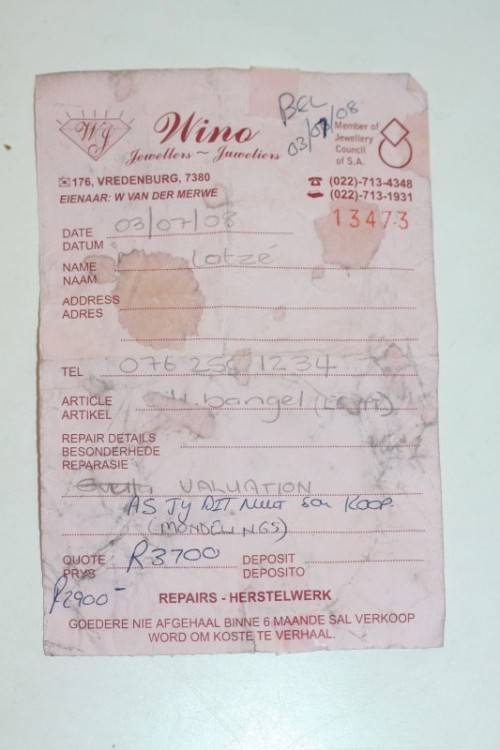 WJ
Wino
Jewellers ~ Juweliers
BEL
03/07/08
Member of
Jewellery
Council
of S.A.
176, VREDENBURG, 7380
EIENAAR: W VAN DER MERWE
(022)-713-4348
(022)-713-1931
13473
DATE 03/07/08
DATUM
NAME Lotzé
NAAM
ADDRESS
ADRES
TEL 076 255 1234
ARTICLE bangel
ARTIKEL
REPAIR DETAILS
BESONDERHEDE
REPARASIE
VALUATION
AS JY DIT NUUT SOU KOOP
(MONDELINGS)
QUOTE R3700 DEPOSIT
PRYS DEPOSITO
R2900-
REPAIRS - HERSTELWERK
GOEDERE NIE AFGEHAAL BINNE 6 MAANDE SAL VERKOOP
WORD OM KOSTE TE VERHAAL.